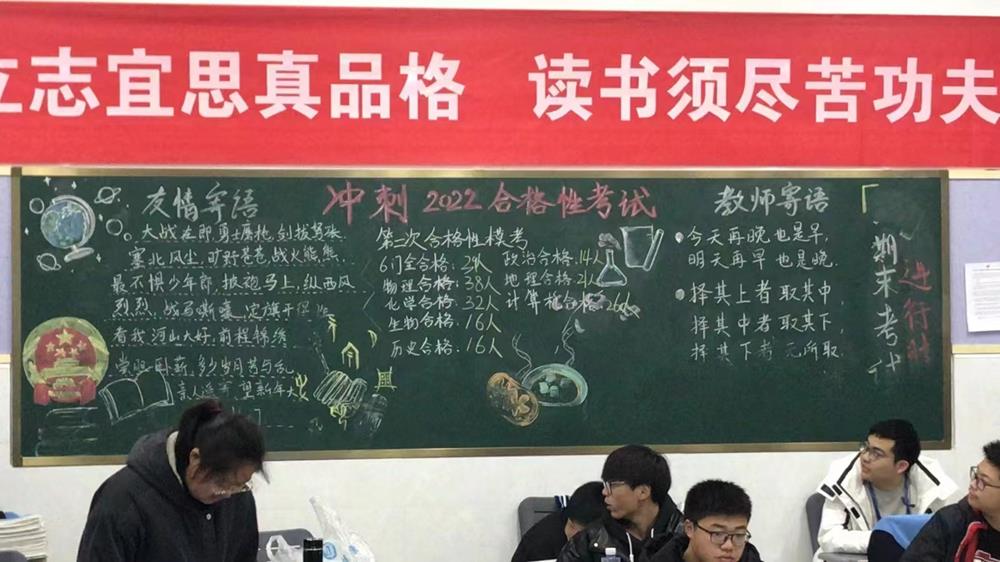 立志宜思真品格 读书须尽苦功夫
友情寄语
大战在即,勇士磨枪,剑拔弩张
塞北风尘,旷野苍苍,战火熊熊
最不惧少年郎,披袍马上,纵西风
烈烈,战马嘶嚎,定旗开得
看我河山大好,前程锦绣
尝胆卧薪,多少岁月苦与乱
望新年
冲刺2022合格性考试
第二次合格性模考
6门全合格:
物理合格:38人
化学合格:32人
生物合格:16人
历史合格:16人
政治合格:14人
地理合格:
计算机合格:
教师寄语
今天再晚也是早,
明天再早也是晚.
择其上者取其中,
择其中者取其下,
择其下者无所取.
期末考试
进行时